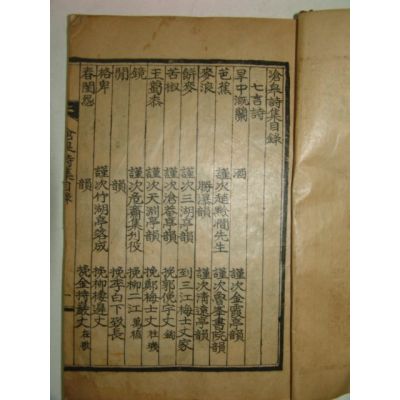 滄皐詩集目錄
七言詩
旱中溉蘭 酒 謹次金霞亭韻
芭蕉 謹次趙黔澗先生 謹次魯峯書院韻
麥浪 勝瀑韻 謹次淸遠亭韻
餅麥 謹次三湖亭韻 到三江梅士丈家
苦椒 謹次滄菴亭韻 挽郭俛宇丈
王蜀黍 謹次天淵亭韻 挽鄭梅士丈
鏡 謹次危齋集列伎 挽柳二江 萬植
閒 韻 挽李白下致長
格卑 謹次竹湖亭落成 挽柳棲遲丈
春閨怨 韻 挽金持敬丈 在
滄皐詩集目錄
一